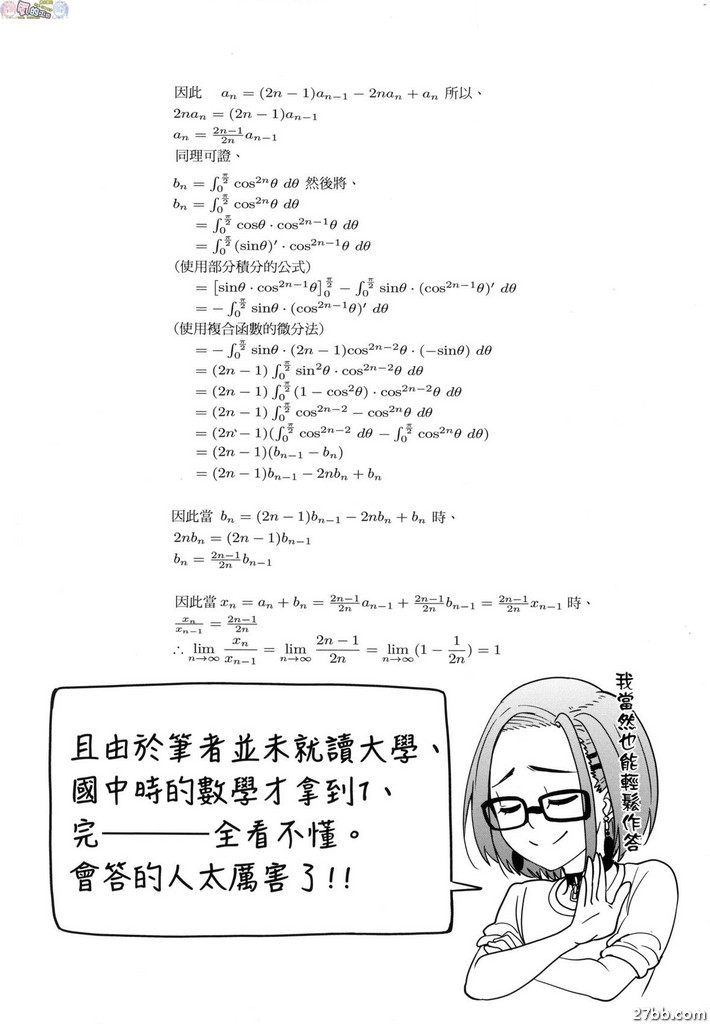 因此 aₙ = (2n − 1)aₙ₋₁ − 2naₙ + aₙ 所以、
2naₙ = (2n − 1)aₙ₋₁
aₙ = \frac{2n−1}{2n}aₙ₋₁
同理可證、
bₙ = ∫_0^{\frac{π}{2}} cos²ⁿθ dθ 然後將、
bₙ = ∫_0^{\frac{π}{2}} cos²ⁿθ dθ
= ∫_0^{\frac{π}{2}} cosθ · cos²ⁿ⁻¹θ dθ
= ∫_0^{\frac{π}{2}} (sinθ)′ · cos²ⁿ⁻¹θ dθ
(使用部分積分的公式)
= [sinθ · cos²ⁿ⁻¹θ]_0^{\frac{π}{2}} − ∫_0^{\frac{π}{2}} sinθ · (cos²ⁿ⁻¹θ)′ dθ
= − ∫_0^{\frac{π}{2}} sinθ · (cos²ⁿ⁻¹θ)′ dθ
(使用複合函數的微分法)
= − ∫_0^{\frac{π}{2}} sinθ · (2n − 1)cos²ⁿ⁻²θ · (−sinθ) dθ
= (2n − 1) ∫_0^{\frac{π}{2}} sin²θ · cos²ⁿ⁻²θ dθ
= (2n − 1) ∫_0^{\frac{π}{2}} (1 − cos²θ) · cos²ⁿ⁻²θ dθ
= (2n − 1) ∫_0^{\frac{π}{2}} cos²ⁿ⁻² − cos²ⁿθ dθ
= (2n − 1)(∫_0^{\frac{π}{2}} cos²ⁿ⁻² dθ − ∫_0^{\frac{π}{2}} cos²ⁿθ dθ)
= (2n − 1)(bₙ₋₁ − bₙ)
= (2n − 1)bₙ₋₁ − 2nbₙ + bₙ
因此當 bₙ = (2n − 1)bₙ₋₁ − 2nbₙ + bₙ 時、
2nbₙ = (2n − 1)bₙ₋₁
bₙ = \frac{2n−1}{2n}bₙ₋₁
因此當 xₙ = aₙ + bₙ = \frac{2n−1}{2n}aₙ₋₁ + \frac{2n−1}{2n}bₙ₋₁ = \frac{2n−1}{2n}xₙ₋₁ 時、
\frac{xₙ}{xₙ₋₁} = \frac{2n−1}{2n}
∴ \lim_{n→∞} \frac{xₙ}{xₙ₋₁} = \lim_{n→∞} \frac{2n − 1}{2n} = \lim_{n→∞} (1 − \frac{1}{2n}) = 1
我當然也能輕鬆作答
且由於筆者並未就讀大學、
國中時的數學才拿到1、
完———全看不懂。
會答的人太厲害了!!
27bb.com